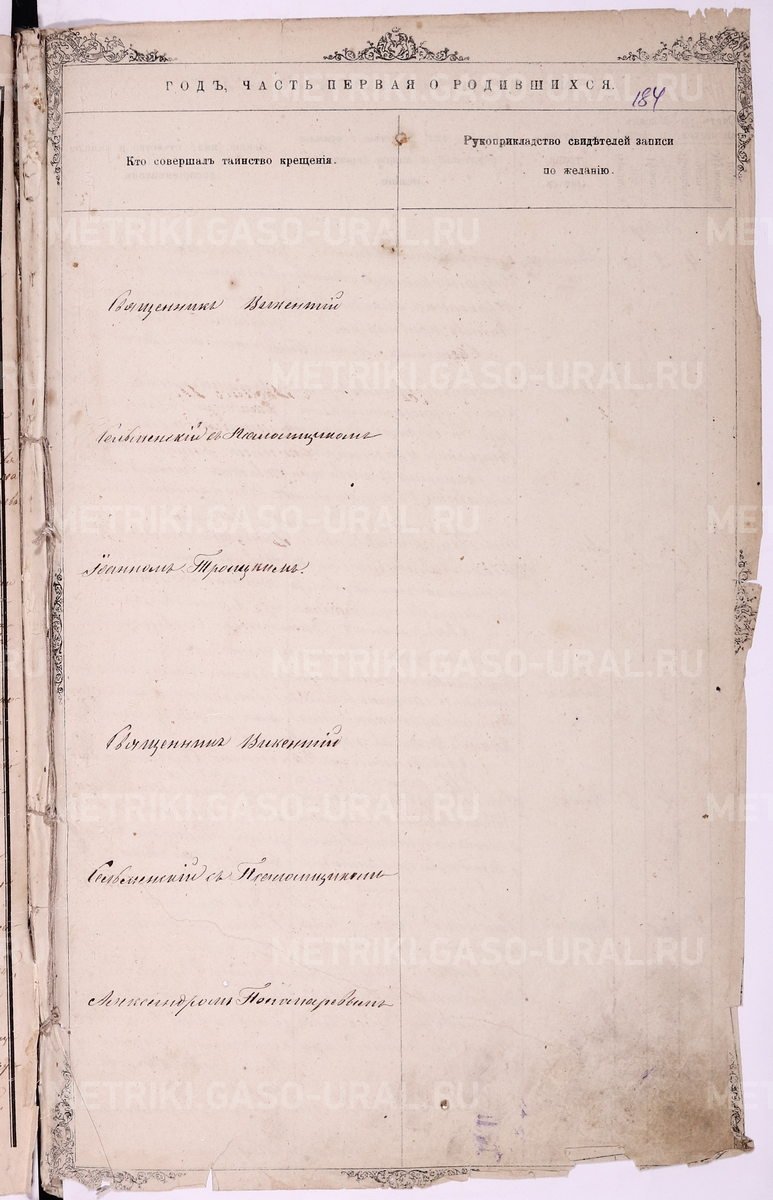 ГОДЪ, ЧАСТЬ ПЕРВАЯ О РОДИВШИХСЯ.
184
Кто совершалъ таинство крещенія.
Рукоприкладство свидѣтелей записи
по желанію.
Священникъ Викентій
Сельменскій съ Псаломщикомъ
Іоанномъ Троицкимъ.
Священникъ Викентій
Сельменскій съ Псаломщикомъ
Александромъ Пономаревымъ
METRIKI.GASO-URAL.RU